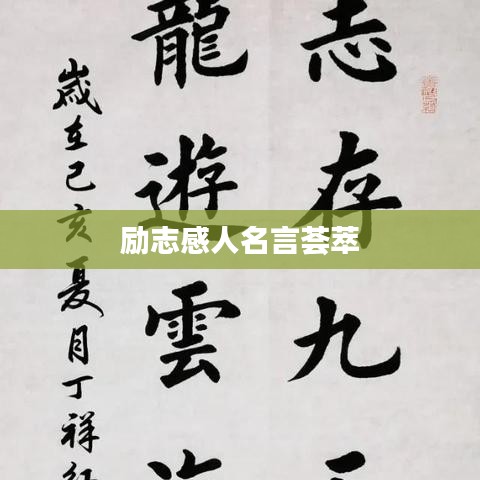 志存九
龍遊雲
歲在己亥夏月丁祥
励志感人名言荟萃